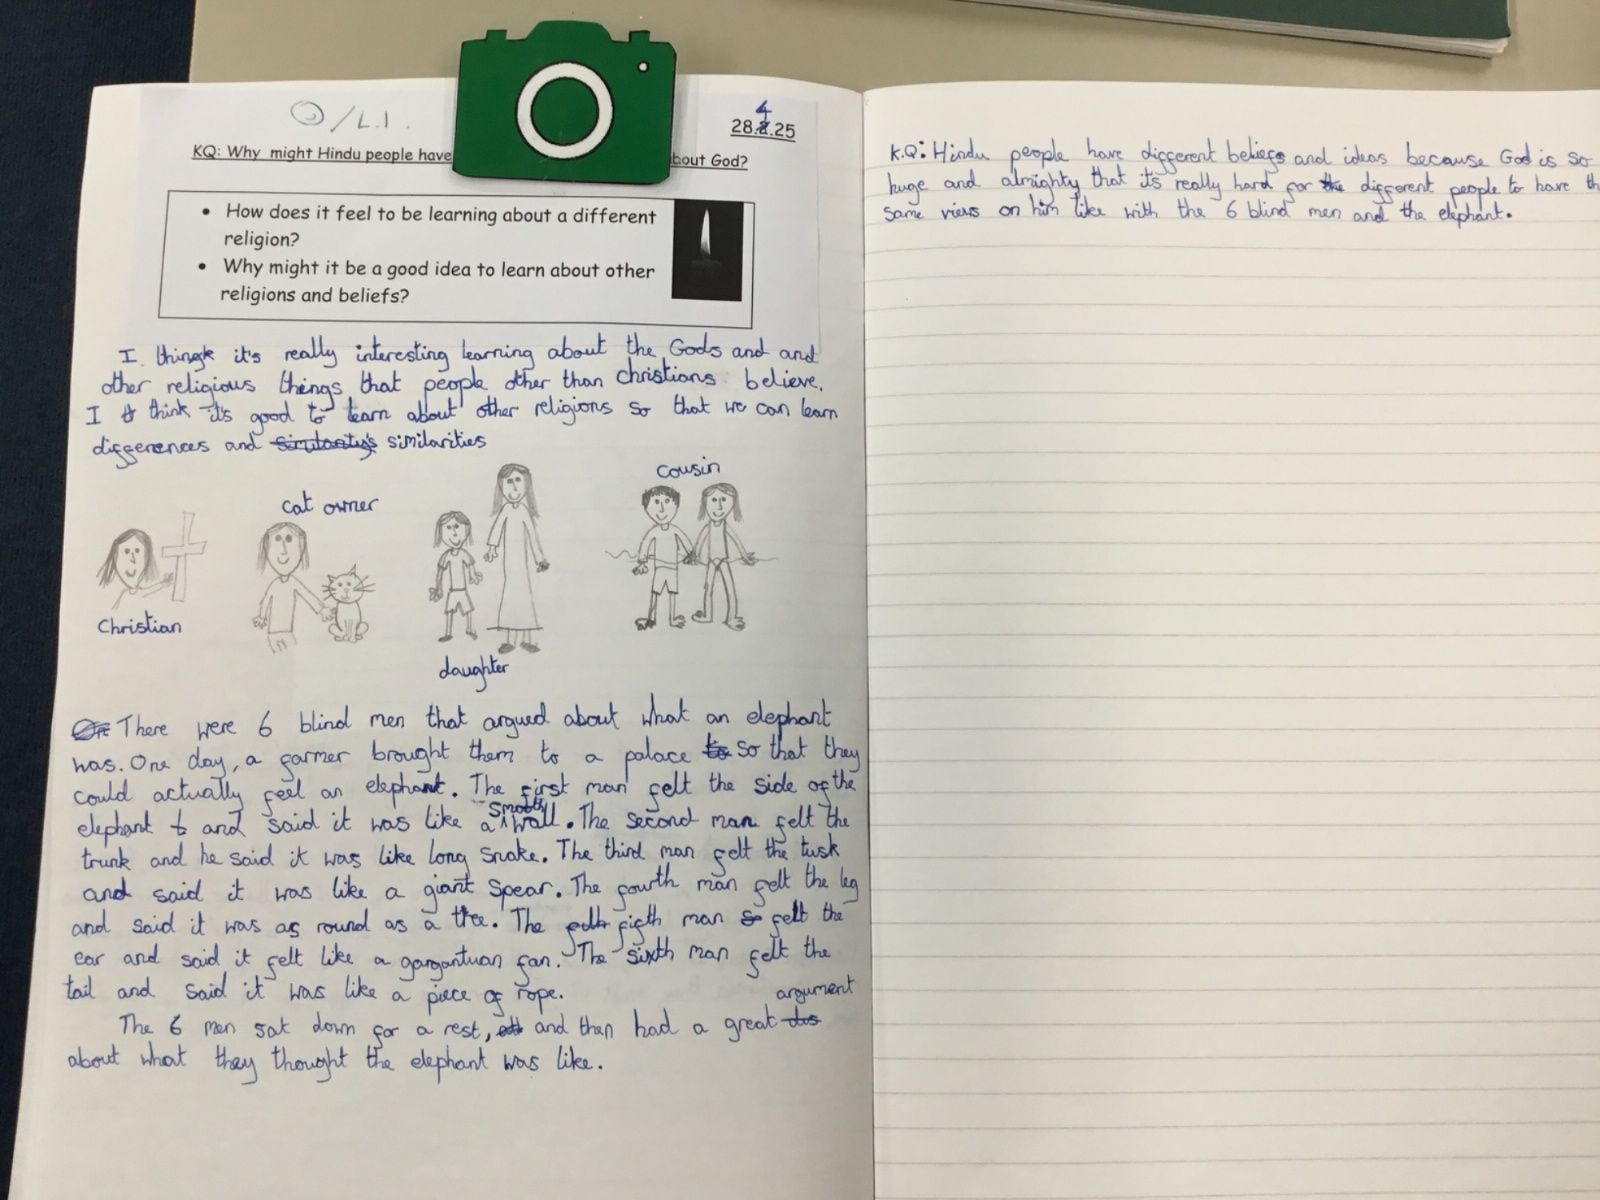 ☺/L.I.
28.4.25
KQ: Why might Hindu people have bout God?
• How does it feel to be learning about a different
religion?
• Why might it be a good idea to learn about other
religions and beliefs?
I think it's really interesting learning about the Gods and and
other religious things that people other than christians believe.
I think it's good to learn about other religions so that we can learn
differences and similarities
Christian
cat owner
daughter
cousin
There were 6 blind men that argued about what an elephant
was. One day, a farmer brought them to a palace so that they
could actually feel an elephant. The first man felt the side of the
elephant and said it was like a smooth wall. The second man felt the
trunk and he said it was like long snake. The third man felt the tusk
and said it was like a giant spear. The fourth man felt the leg
and said it was as round as a tree. The fifth man felt the
ear and said it felt like a gargantuan fan. The sixth man felt the
tail and said it was like a piece of rope.
The 6 men sat down for a rest, and then had a great argument
about what they thought the elephant was like.
K.Q: Hindu people have different beliefs and ideas because God is so
huge and almighty that it's really hard for different people to have th
same views on him like with the 6 blind men and the elephant.